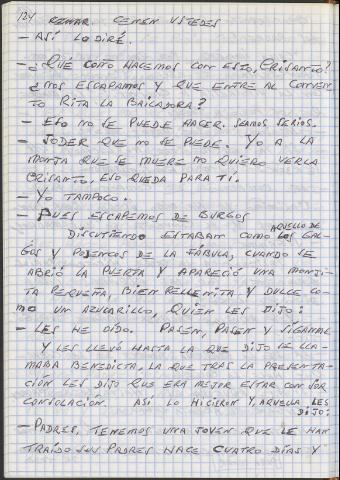 124 REZAR. CEMEN USTEDES
- ASÍ LO DIRÉ.
- ¿QUÉ COMO HACEMOS CON ESTO, CRISANTO?
¿NOS ESCAPAMOS Y QUE ENTRE AL CONVEN-
TO RITA LA BAILADORA?
- ESO NO SE PUEDE HACER. SEAMOS SERIOS.
- JODER QUE NO SE PUEDE. YO A LA
MONJA QUE SE MUERE NO QUIERO VERLA
CRISANTO, ESO QUEDA PARA TÍ.
- YO TAMPOCO.
- PUES ESCAPEMOS DE BURGOS
DISCUTIENDO ESTABAN COMO AQUELLO DE LOS GAL-
GOS Y PODENCOS DE LA FÁBULA, CUANDO SE
ABRIÓ LA PUERTA Y APARECIÓ UNA MONJI-
TA PEQUEÑA, BIEN RELLENITA Y DULCE CO-
MO UN AZUCARILLO, QUIEN LES DIJO:
- LES HE OIDO. PASEN, PASEN Y SIGANME
Y LES LLEVÓ HASTA LA QUE DIJO SE LLA-
MABA BENEDICTA, LA QUE TRAS LA PRESENTA-
CIÓN LES DIJO QUE ERA MEJOR ESTAR CON SOR
CONSOLACIÓN. ASÍ LO HICIERON Y, AQUELLA LES
DIJO:
- PADRES, TENEMOS UNA JOVEN QUE LE HAN
TRAÍDO SUS PADRES HACE CUATRO DÍAS Y